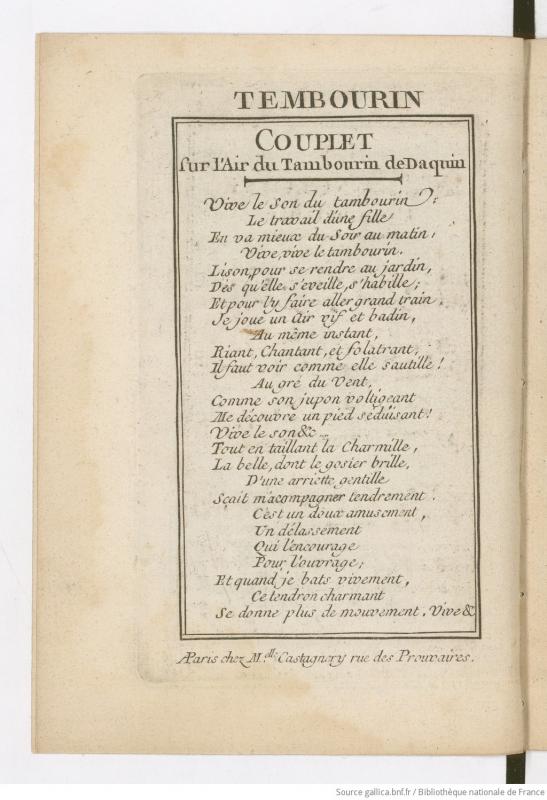 TEMBOURIN
COUPLET
sur l'Air du Tambourin de Daquin
Vive le Son du tambourin :
Le travail d'une fille
En va mieux du Soir au matin,
Vive, vive le tambourin.
Lison, pour se rendre au jardin,
Dès qu'elle s'eveille, s'habille ;
Et pour l'y faire aller grand train,
Je joue un Air vif et badin,
Au même instant,
Riant, Chantant, et folatrant,
Il faut voir comme elle sautille !
Au gré du Vent,
Comme son jupon voltigeant
Me découvre un pied séduisant !
Vive le son &c ...
Tout en taillant la Charmille,
La belle, dont le gosier brille,
D'une arriette gentille
Sçait m'acompagner tendrement :
C'est un doux amusement,
Un délassement
Qui l'encourage
Pour l'ouvrage ;
Et quand je bats vivement,
Ce tendron charmant
Se donne plus de mouvement. Vive &
A Paris chez M.elle Castagnery rue des Prouvaires.
Source gallica.bnf.fr / Bibliothèque nationale de France